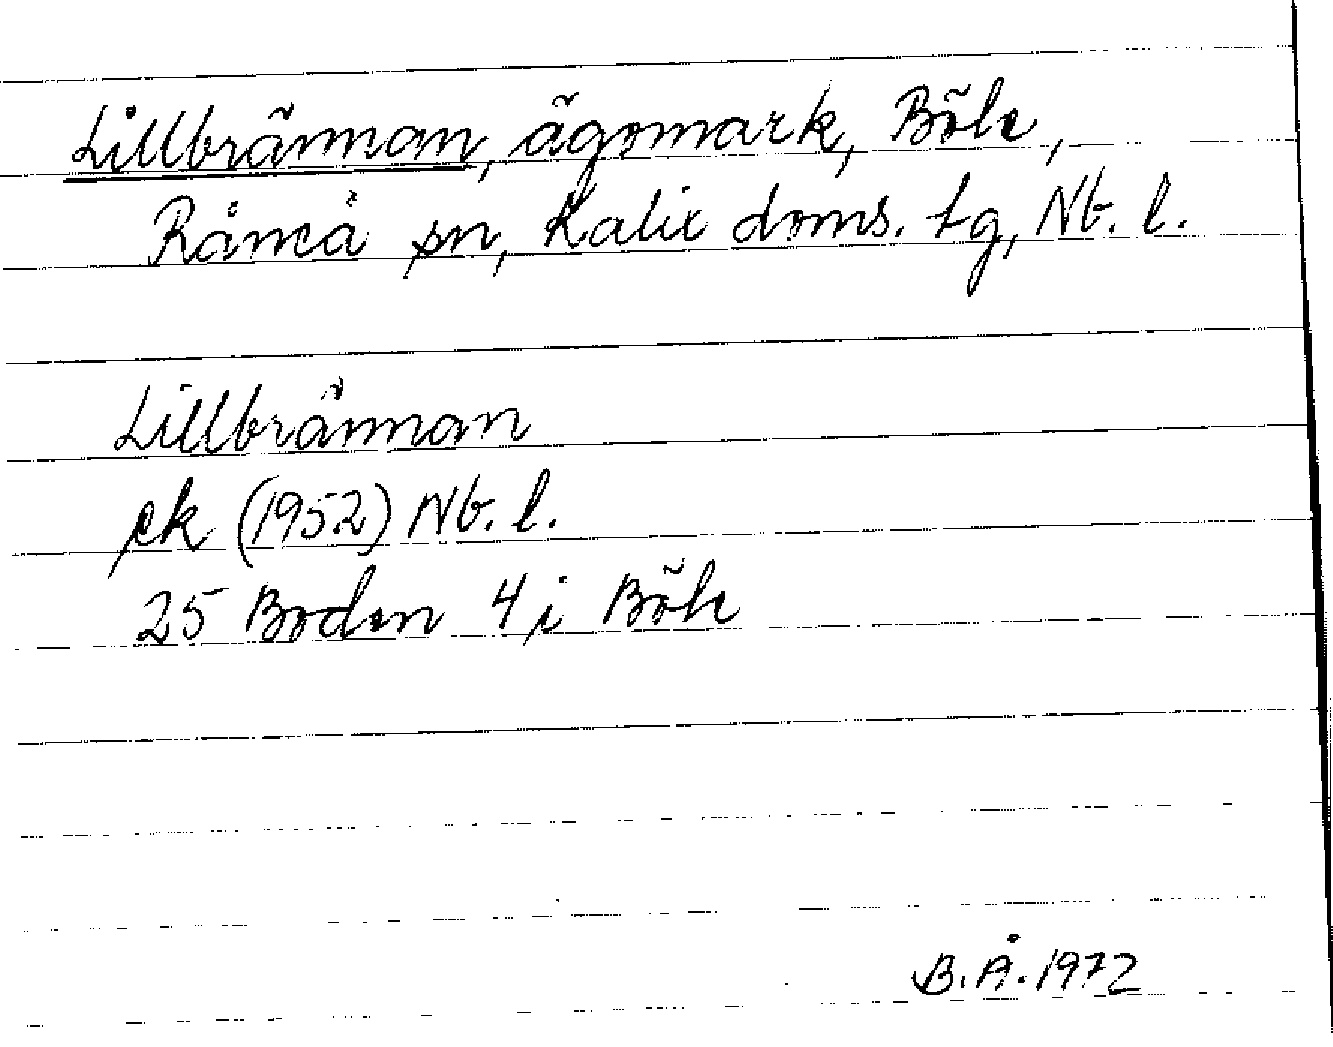 Lillbrännan, ägomark, Böle,
Råneå sn, Kalix doms. tg, Nb. l.
Lillbrännan
ek (1952) Nb. l.
25 Boden 4 i Böle
B. Å. 1972